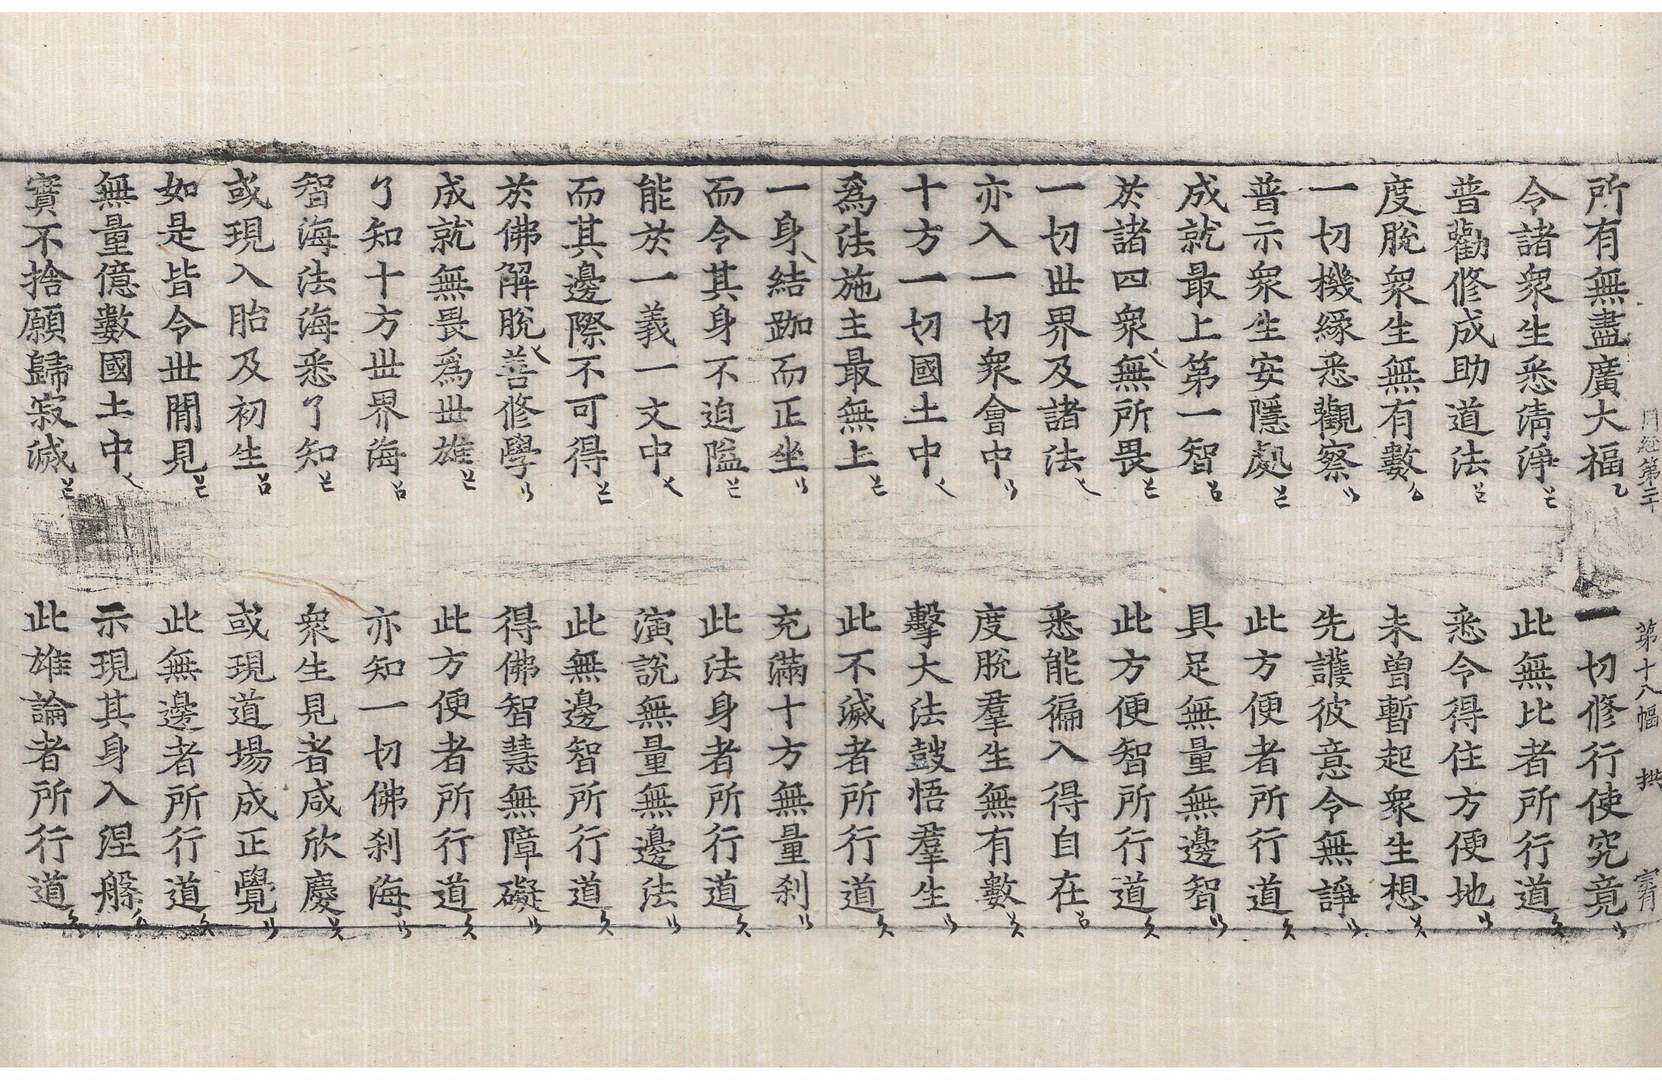 周経第二十 第十八幅 拱
所有無盡廣大福 一切修行使究竟
令諸衆生悉淸淨 此無比者所行道
普勸修成助道法 悉令得住方便地
度脫衆生無有數 未曾暫起衆生想
一切機緣悉觀察 先護彼意令無諍
普示衆生安隱處 此方便者所行道
成就最上第一智 具足無量無邊智
於諸四衆無所畏 此方便智所行道
一切世界及諸法 悉能徧入得自在
亦入一切衆會中 度脫羣生無有數
十方一切國土中 擊大法鼓悟羣生
爲法施主最無上 此不滅者所行道
一身結跏而正坐 充滿十方無量刹
而令其身不迫隘 此法身者所行道
能於一義一文中 演說無量無邊法
而其邊際不可得 此無邊智所行道
於佛解脫善修學 得佛智慧無障礙
成就無畏爲世雄 此方便者所行道
了知十方世界海 亦知一切佛刹海
智海法海悉了知 衆生見者咸欣慶
或現入胎及初生 或現道場成正覺
如是皆令世間見 此無邊者所行道
無量億數國土中 示現其身入涅槃
實不捨願歸寂滅 此雄論者所行道